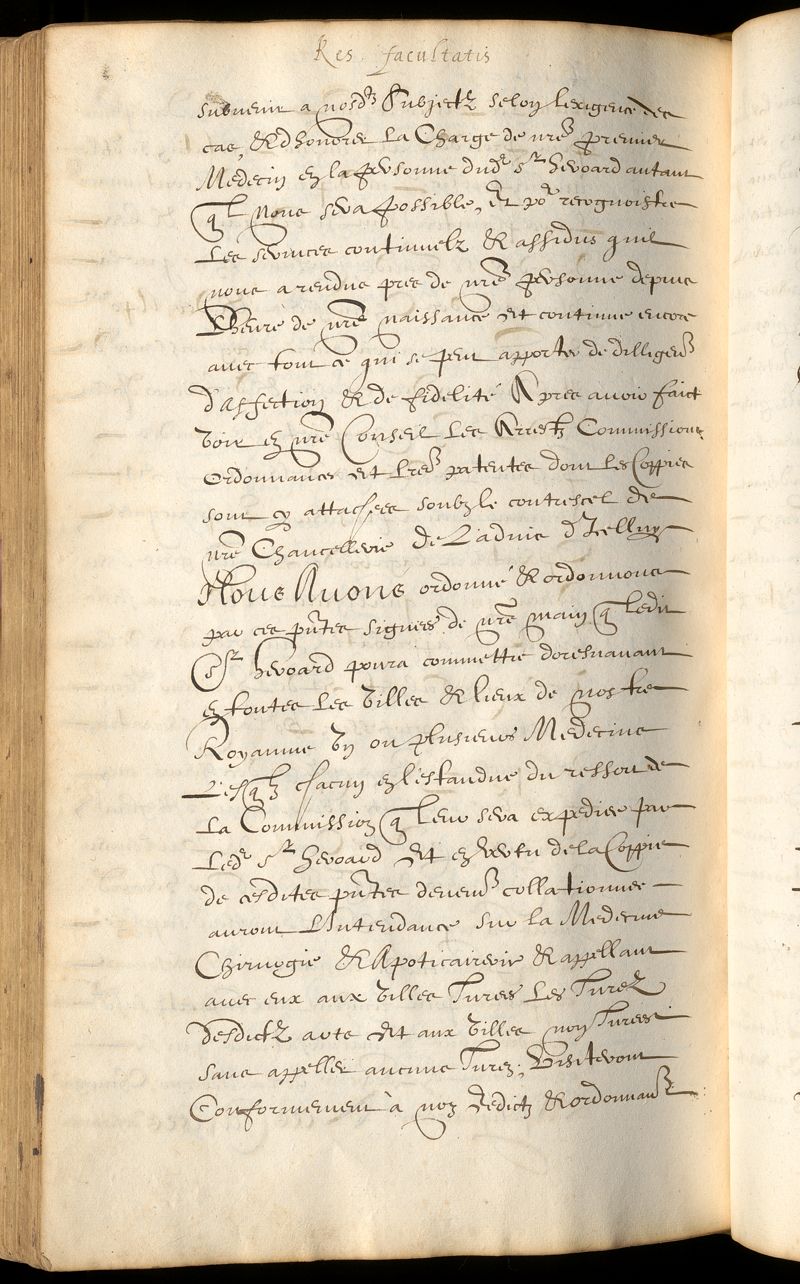 Res facultatis
subvenir a nosdtz Subjectz selon lexigence des
cas, Et dhonorer La Charge de nre premier
Medecin en la personne dudt sr heroard autant
ql Nous sera possible, Et por recognoistre
Les services continuelz & assidus quil
nous a rendus pres de nre personne depuis
Lheure de nre naissance et continue encore
avec tout ce qui se peut apporter de dilligence
d'affection & de fidelité Apres avoir faict
voir en nre Conseil Les Arrestz Commissions
Ordonnances et Lres patentes dont Les Coppies
sont cy attachees soubz le contrescel de
nre Chancellerie De L'advis d'Icelluy
Nous Avons ordonné & ordonnons
par ces pntes signees de nre main q ledit
Sr heroard poura commettre doresnavant
en toutes Les villes & lieux de nostre
Royaume un ou plusieurs Medecins
Lesqlz chacun en l'estandue du ressort de
La Commission q leur sera expediee par
Ledt sr heroard et en vertu de la Coppie
de cesdites pntes deuement collationnee
auront L'Intendance sur la Medecine
Chirurgie & Apoticairerie & appellant
avec eux aux villes Jurees Les Jurez
desdictz arts et aux villes non Jurees
sans appeller aucuns Jurez, Visiteront
Conformement à noz Edictz & ordonnances